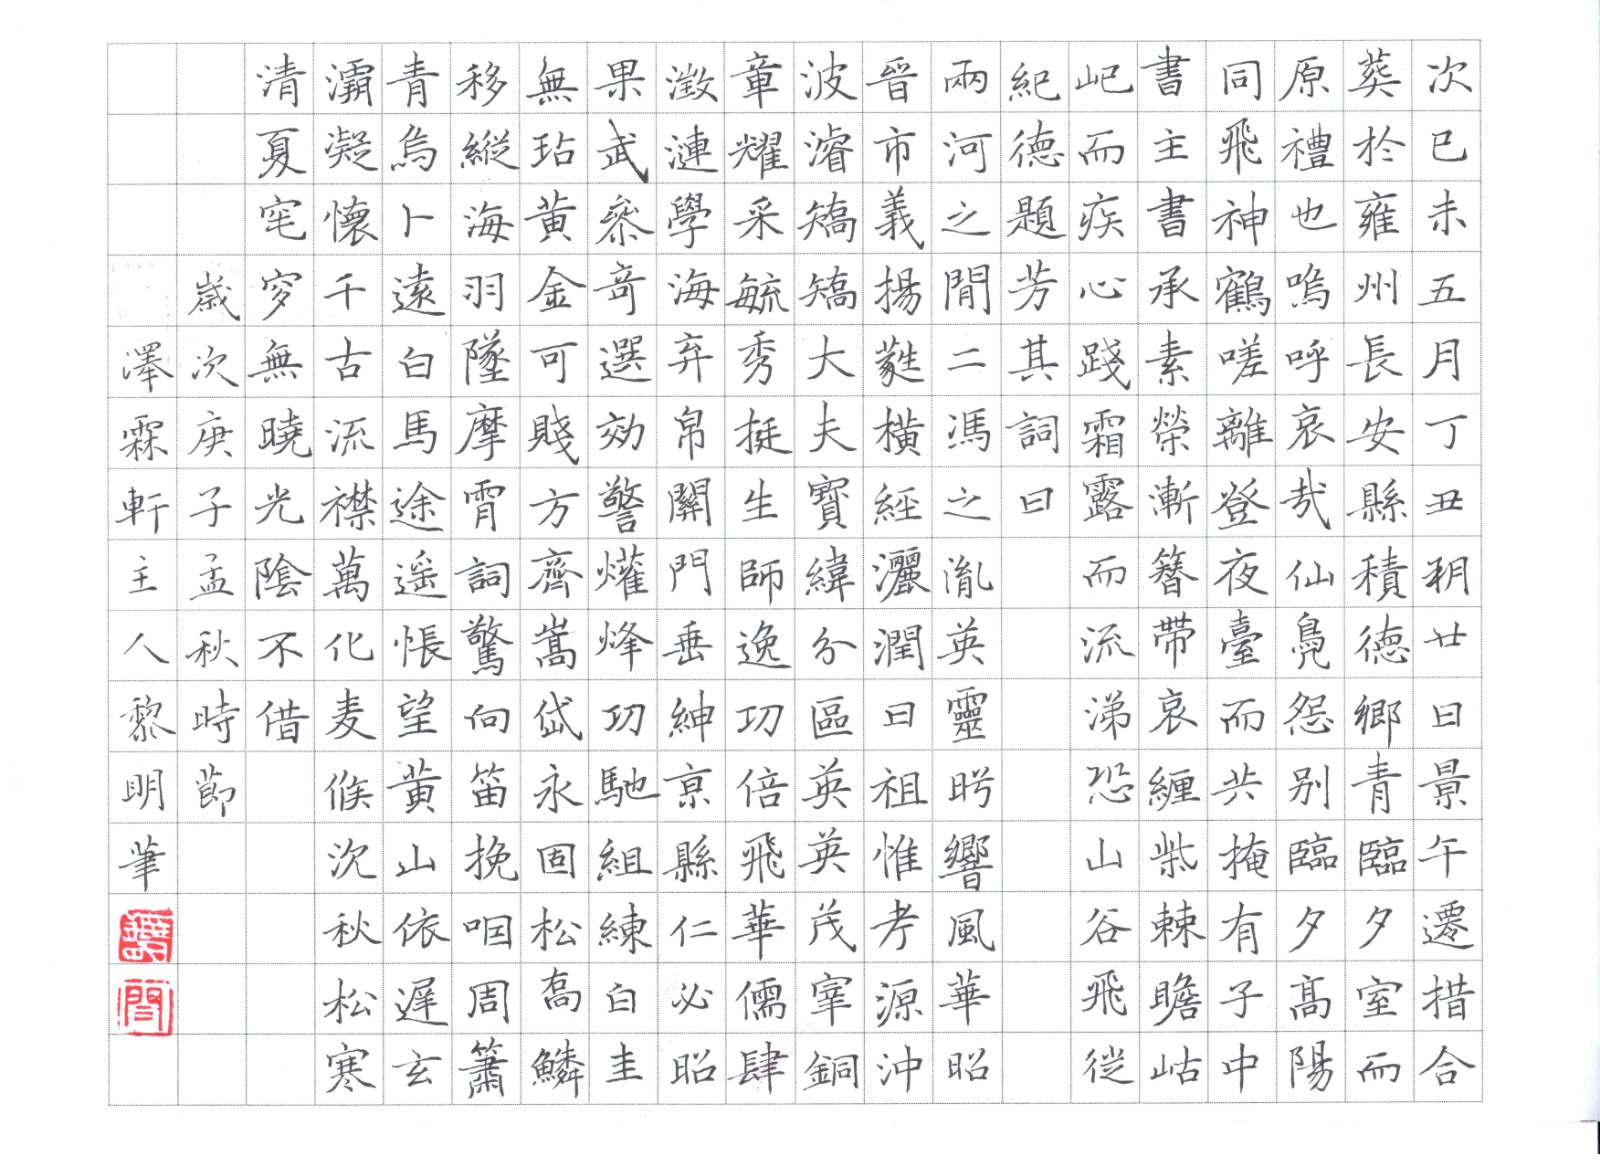 次巳未五月丁丑朔廿日景午遷措合
葬於雍州長安縣積德鄉青臨夕室而
原禮也嗚呼哀哉仙鳧怨别臨夕高陽
同飛神鶴嗟離登夜臺而共掩有子中
書主書承素榮漸簪帶哀纏柴棘瞻岵
屺而疾心踐霜露而流涕恐山谷飛從
紀德題芳其詞曰
兩河之間二馮之胤英靈昣響風華昭
晉市義揚蕤橫經灑潤曰祖惟考源沖
波濬矯矯大夫寶緯分區英英茂宰銅
章耀采毓秀挺生師逸功倍飛華儒肆
澂漣學海弃帛關門垂紳京縣仁必昭
果武叅奇選効警燿烽功馳組練白圭
無玷黃金可賤方齊嵩岱永固松喬鱗
移縱海羽墜摩霄詞驚向笛挽咽周簫
青烏卜遠白馬途遥悵望黃山依遲玄
灞凝懷千古流襟萬化麦候次秋松寒
清夏窀穸無曉光陰不借
歲次庚子孟秋時節
澤霖軒主人黎明筆